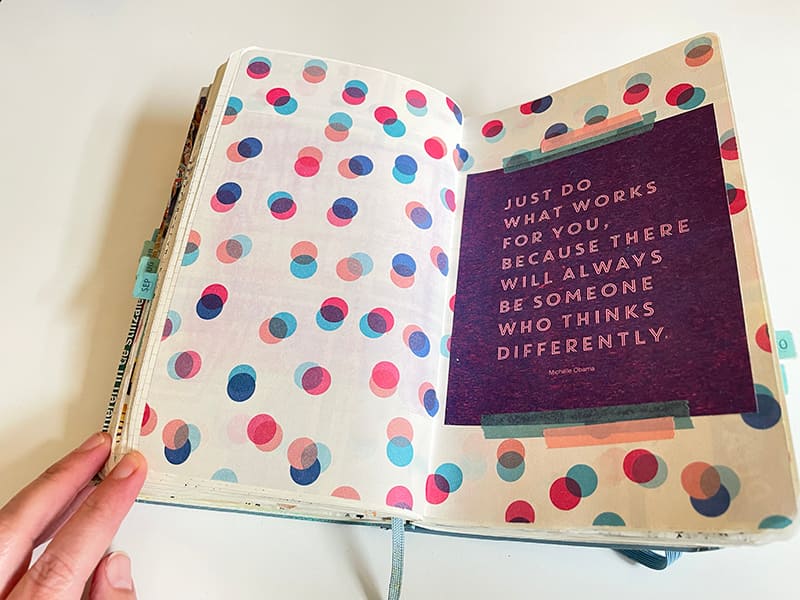 SEP
neren in de stilizate
JUST DO
WHAT WORKS
FOR YOU,
BECAUSE THERE
WILL ALWAYS
BE SOMEONE
WHO THINKS
DIFFERENTLY.
Michelle Obama
O